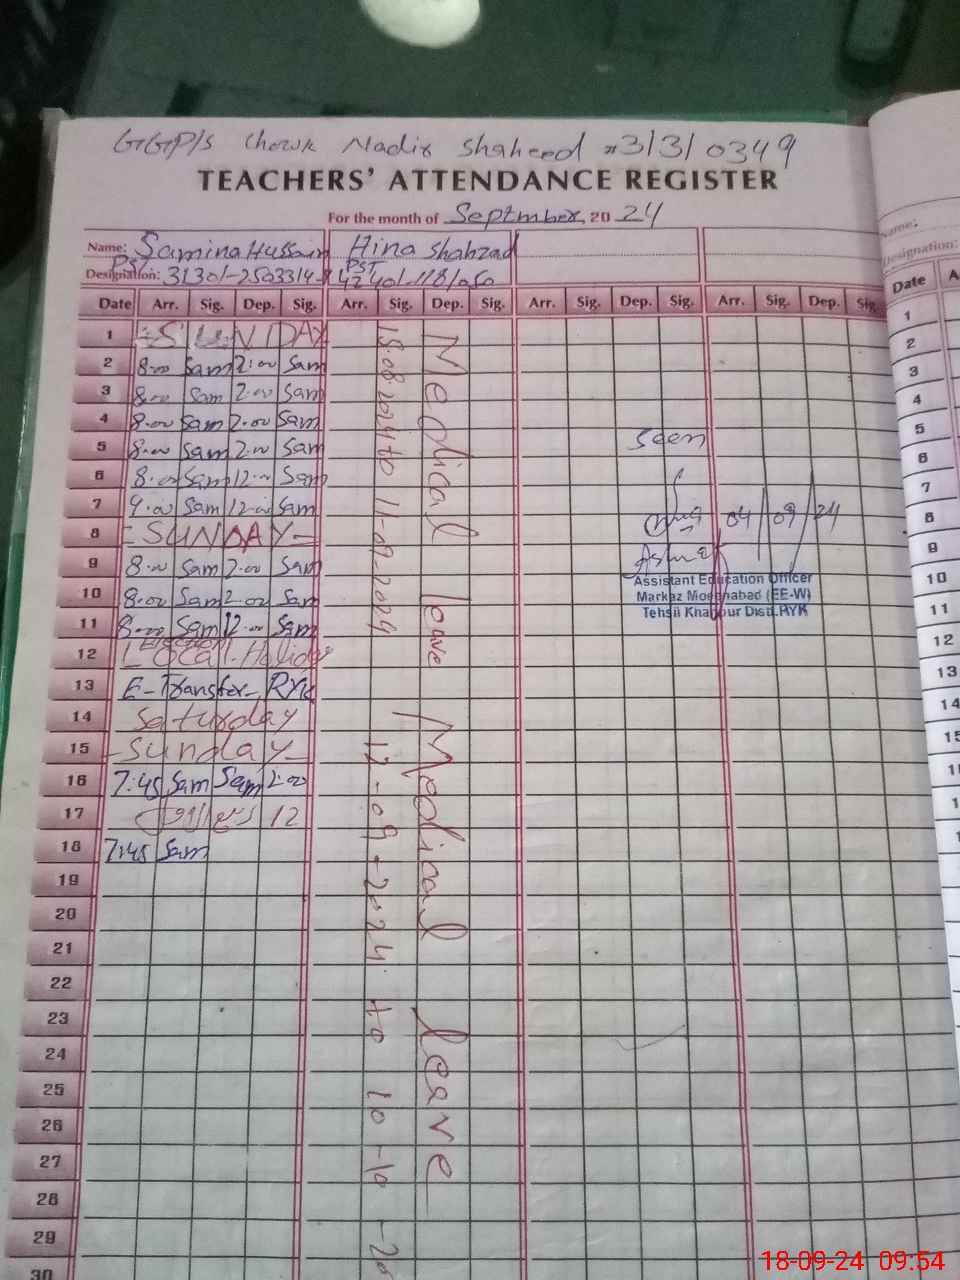 GGP/S Chowk Nadir Shaheed #31310349
TEACHERS' ATTENDANCE REGISTER
For the month of September, 20 24
Name: Samina Hussain Hina Shahzad
PST PST
Designation: 31301-2503314-
Date Arr. Sig. Dep. Sig. Arr. Sig. Dep. Sig. Arr. Sig. Dep. Sig. Arr. Sig. Dep. Sig.
1 SUNDAY
2 8-00 Sam 2:00 Sam
3 8-00 Sam 2-00 Sam
4 8-00 Sam 2-00 Sam
5 8-00 Sam 2-00 Sam
6 8-00 Sam 12-00 Sam
7 9-00 Sam 12-00 Sam
8 - SUNDAY -
9 8-00 Sam 2-00 Sam
10 8-00 Sam 2-00 Sam
11 8-00 Sam 2-00 Sam
12 Local Holiday
13 E-Transfer RYK
14 Saturday
15 - Sunday -
16 7:45 Sam Sam 2:00
17 12
18 7:45 Sam
19
20
21
22
23
24
25
26
27
28
29
30
Medical leave
15.08.2024 to 11-09-2024
Medical leave
12-09-2024 to 10-10-20
Seen
04/09/24
Assistant Education Officer
Markaz Moeenabad (EE-W)
Tehsil Khanpur Distt.RYK
Name:
Designation:
Date
1
2
3
4
5
6
7
8
9
10
11
12
13
14
15
18-09-24 09:54